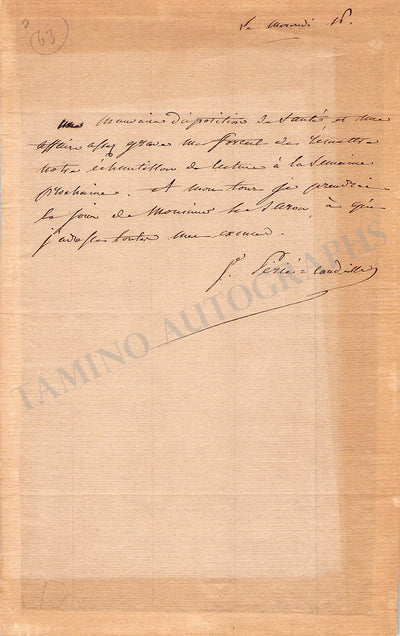 63
Le Mercredi 16.
une mauvaise disposition de santé et une
affaire assez grave me forcent de remettre
notre échantillon de lecture à la semaine
prochaine. et mon tour je prendrai
le jour de Monsieur le Baron, à qui
j'adresse toutes mes excuses.
J. Périé-Candeille
TAMINO AUTOGRAPHS